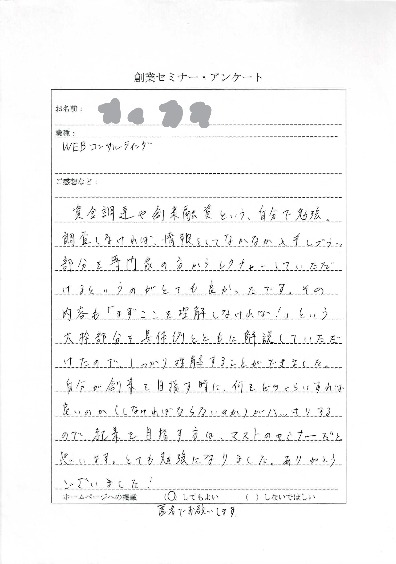 創業セミナー・アンケート
お名前：
業種：
WEBコンサルティング
ご感想など：
資金調達や創業融資という、自分で勉強、
調査しなければ、情報としてなかなか入手しづらい
部分を専門家の方からレクチャーしていただ
けるというのがとても良かったです。その
内容も「まずここを理解しなければ！」という
大枠部分を具体例とともに解説していただ
けたので、しっかり理解することができました。
自分が創業を目指す時に、何をどうすれば
良いのか（しなければならないのか）がハッキリする
ので、起業を目指す方は、マストのセミナーだと
思います。とても勉強になりました。ありがとう
ございました！
ホームページへの掲載 （○）してもよい （ ）しないでほしい
匿名でお願いします